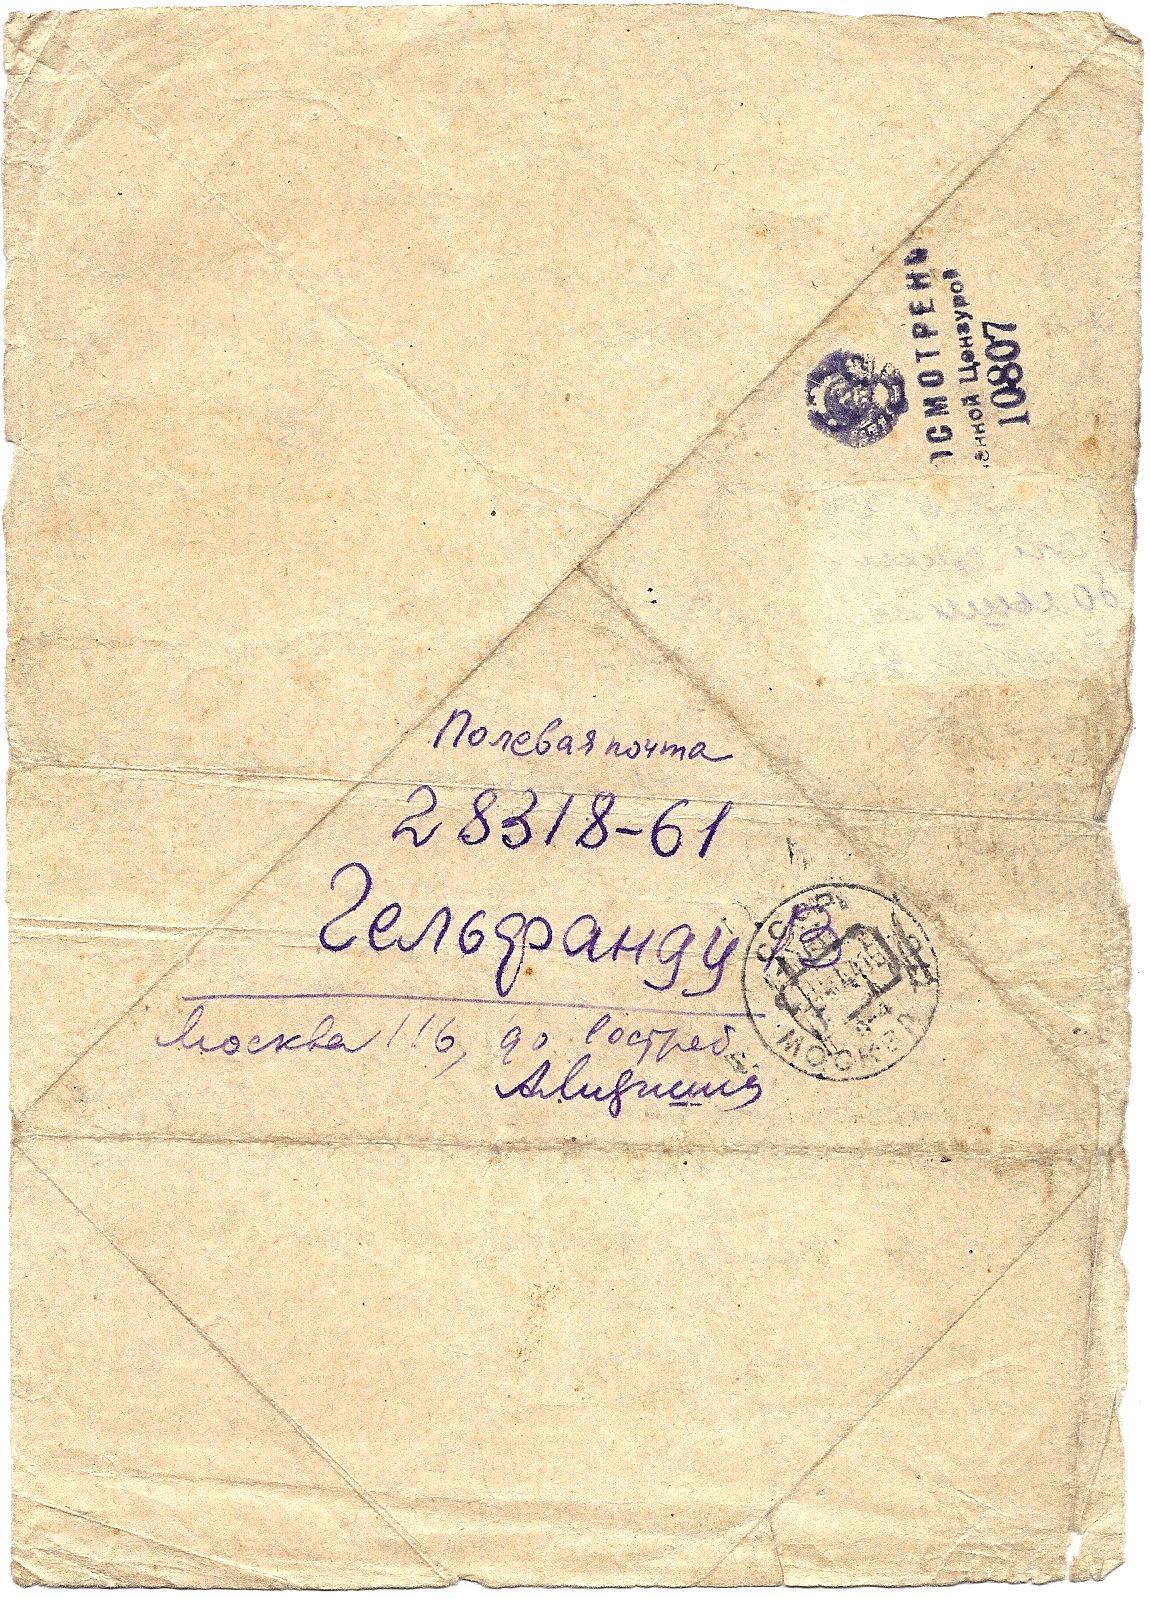 ІСМОТРЕН
енной Цензурой
10807
Полевая почта
28318-61
Гельфанду В
Москва 116, до востреб.
СССР
МОСКВА